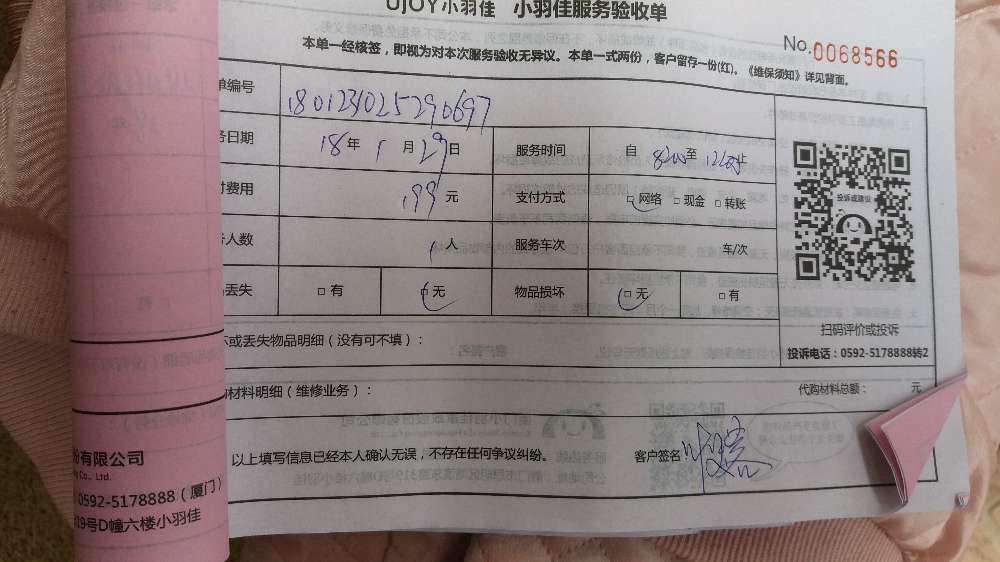 UJOY小羽佳 小羽佳服务验收单
本单一经核签，即视为对本次服务验收无异议。本单一式两份，客户留存一份(红)。《维保须知》详见背面。
No.0068566
单编号 1801231025290697
务日期 18年1月29日 服务时间 自 8:00 至 12:00 止
付费用 199元 支付方式 □网络 □现金 □转账
务人数 1人 服务车次 车/次
品丢失 □有 □无 物品损坏 □无 □有
投诉或建议
扫码评价或投诉
投诉电话：0592-5178888转2
坏或丢失物品明细（没有可不填）：
购材料明细（维修业务）： 代购材料总额： 元
以上填写信息已经本人确认无误，不存在任何争议纠纷。 客户签名
份有限公司
Co., Ltd.
0592-5178888（厦门）
319号D幢六楼小羽佳